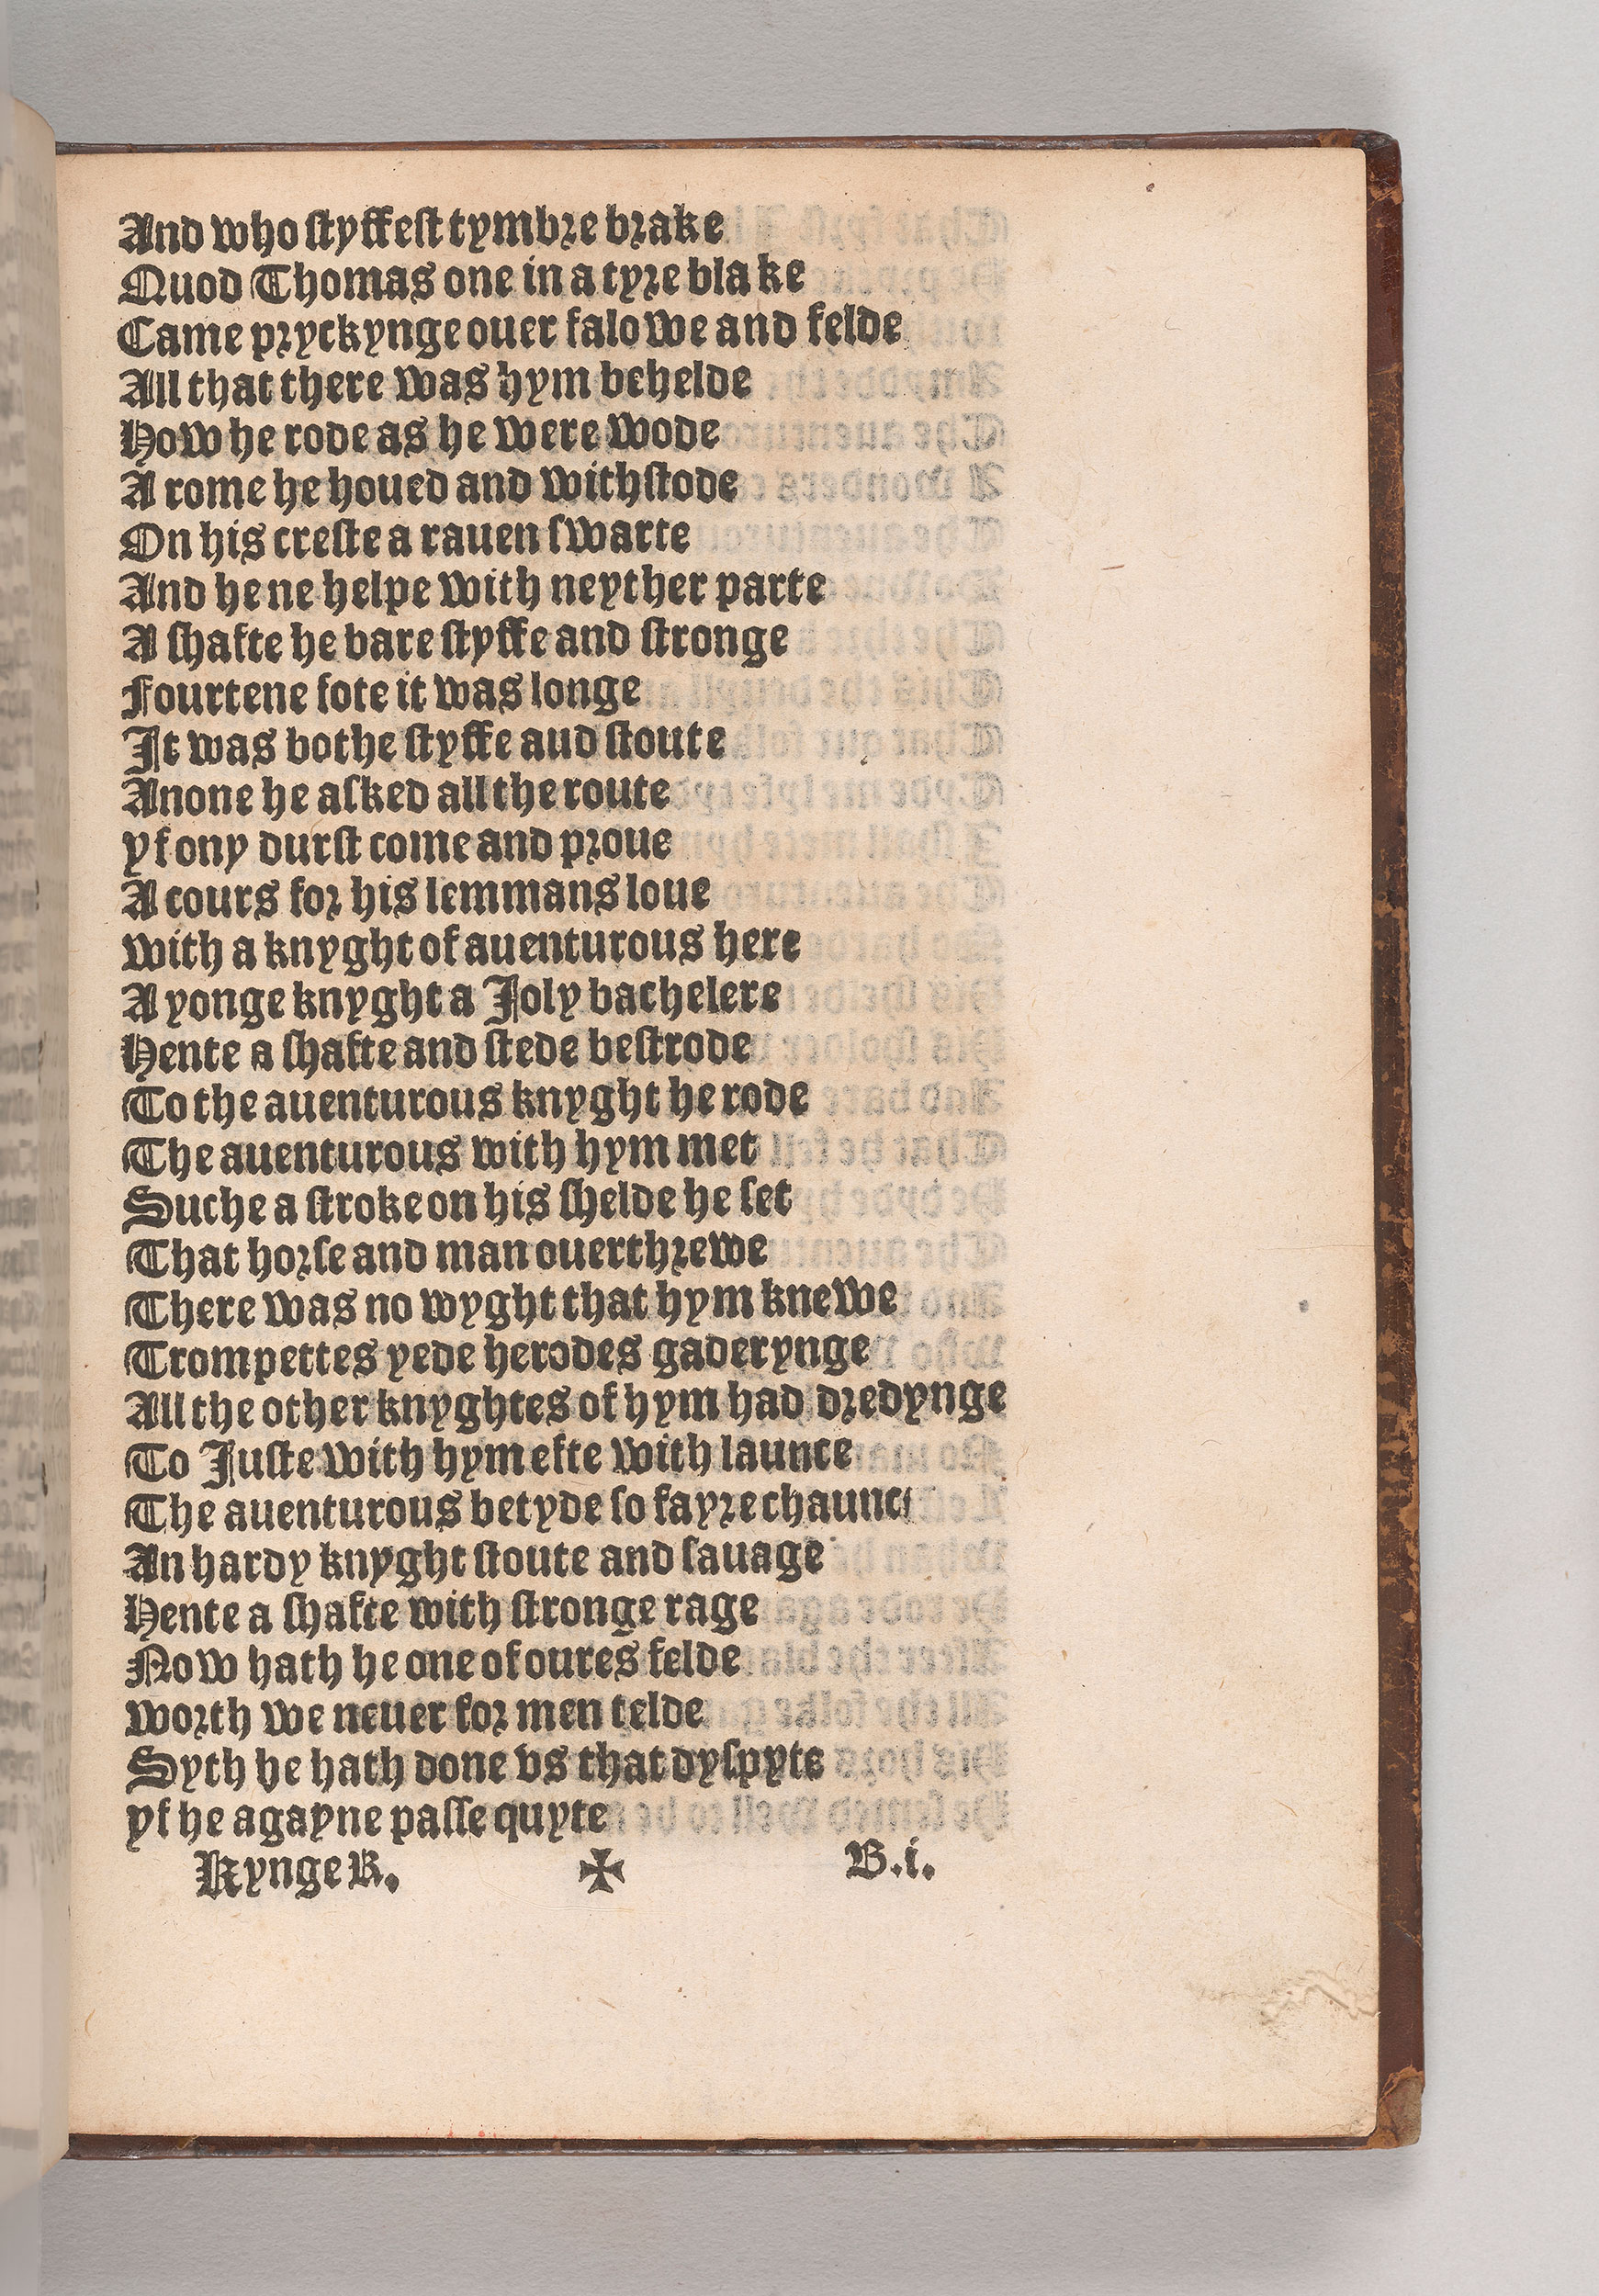 And who styffest tymbre brake
Quod Thomas one in a tyre blake
Came pryckynge ouer falowe and felde
All that there was hym behelde
How he rode as he were wode
A rome he houed and withstode
On his creste a rauen swarte
And he ne helpe with neyther parte
A shafte he bare styffe and stronge
Fourtene fote it was longe
It was bothe styffe aud stoute
Anone he asked all the route
yf ony durst come and proue
A cours for his lemmans loue
with a knyght of auenturous here
A yonge knyght a Joly bachelere
Hente a shafte and stede bestrode
To the auenturous knyght he rode
The auenturous with hym met
Suche a stroke on his shelde he set
That horse and man ouerthrewe
There was no wyght that hym knewe
Trompettes yede herodes gaderynge
All the other knyghtes of hym had dredynge
To Juste with hym efte with launce
The auenturous betyde so fayre chaunce
An hardy knyght stoute and sauage
Hente a shafte with stronge rage
Now hath he one of oures felde
worth we neuer for men telde
Syth he hath done vs that dyspyte
yf he agayne passe quyte
Kynge R. ✠ B.i.